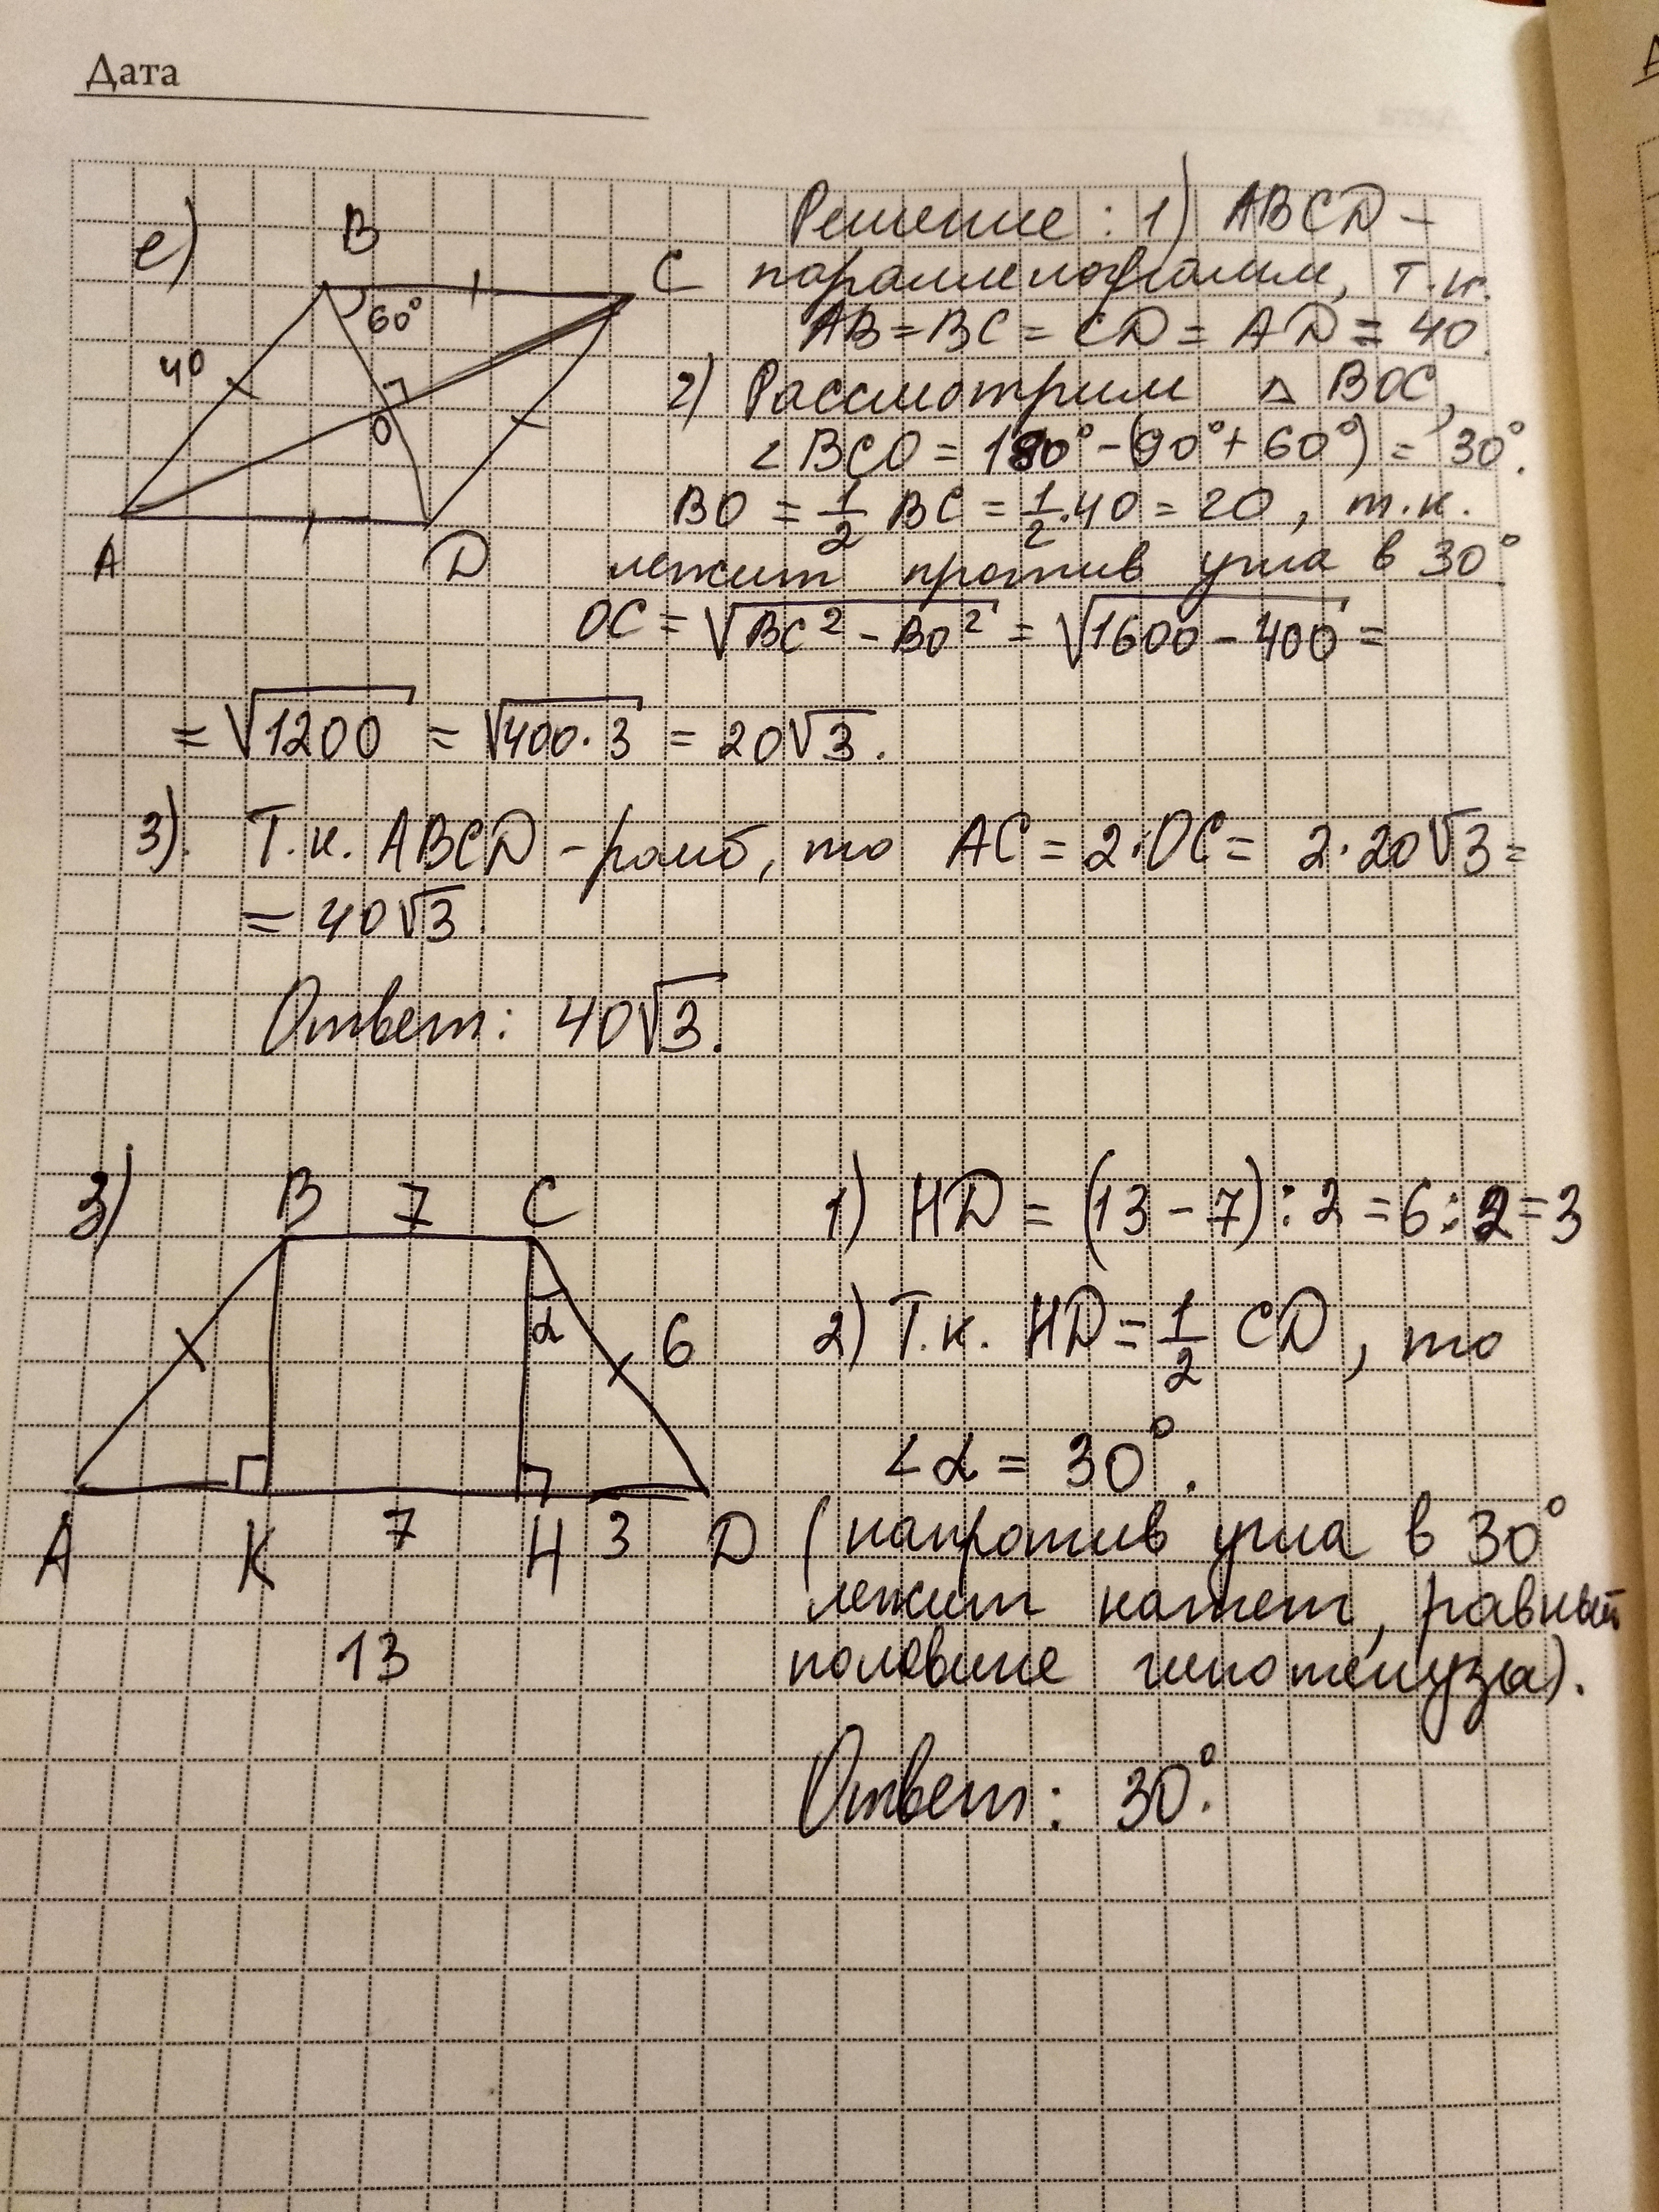 Дата
е)
B
C
60°
40
O
A
D
Решение: 1) ABCD –
параллелограмм, т.к.
AB = BC = CD = AD = 40
2) Рассмотрим △ BOC,
∠BCO = 180° - (90° + 60°) = 30°.
BO = 1/2 BC = 1/2 · 40 = 20, т.к.
лежит против угла в 30°
OC = √(BC² - BO²) = √(1600 - 400) =
= √1200 = √(400·3) = 20√3.
3). Т.к. ABCD – ромб, то AC = 2·OC = 2·20√3 =
= 40√3
Ответ: 40√3.
з)
B 7 C
α
6
A K 7 H 3 D
13
1) HD = (13 - 7) : 2 = 6 : 2 = 3
2) Т.к. HD = 1/2 CD, то
∠α = 30°.
(напротив угла в 30°
лежит катет, равный
половине гипотенузы).
Ответ: 30°.